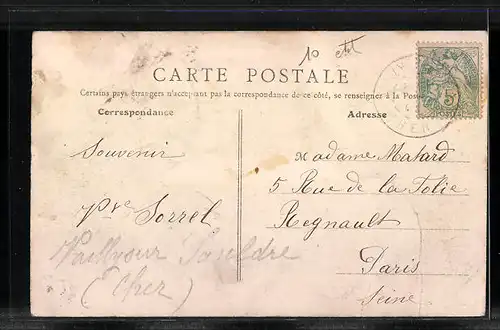 10
CARTE POSTALE
Certains pays étrangers n'acceptant pas la correspondance de ce côté, se renseigner à la Poste
Correspondance
Adresse
Souvenir
Madame Matard
5 Rue de la Folie
Sorrel
Regnault
Vailly sur Sauldre
Paris
(Cher)
Seine
5